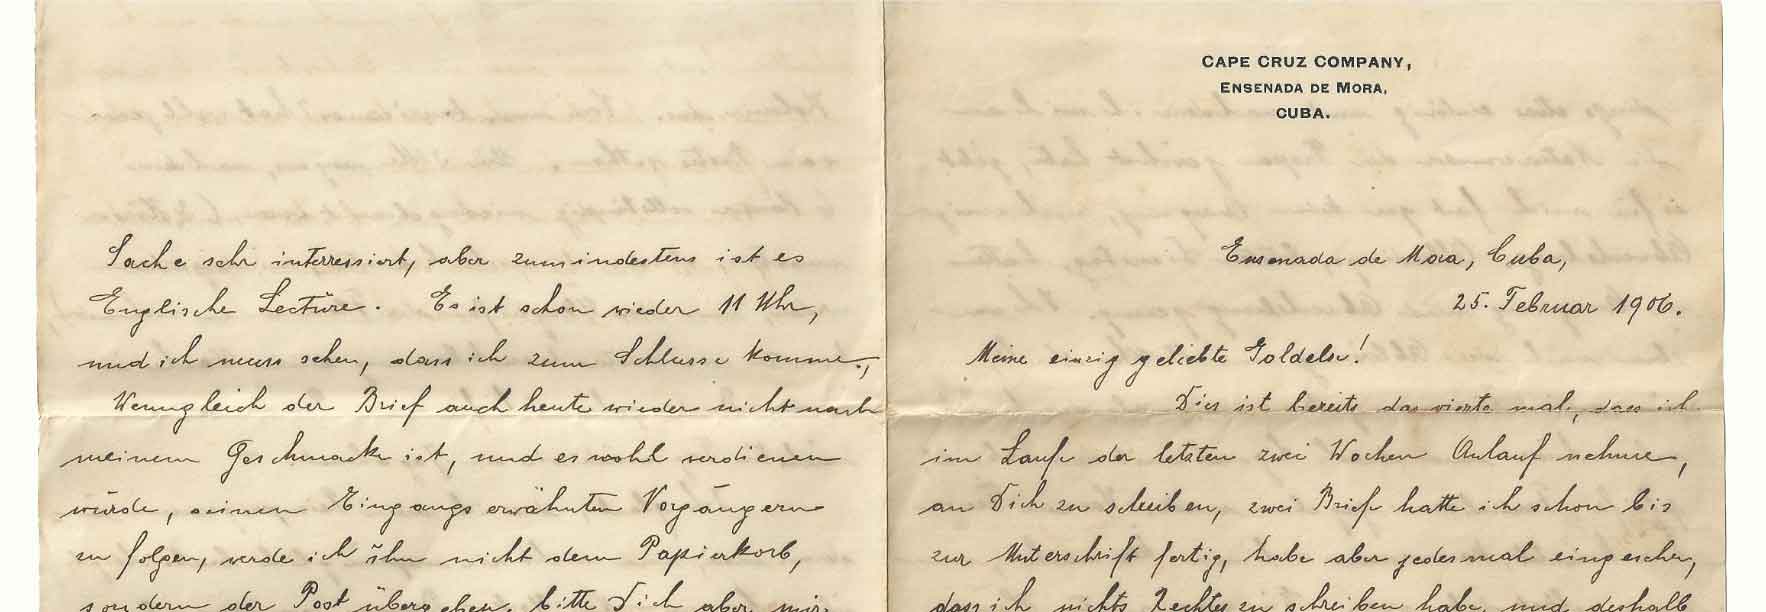 Sache sehr interressiert, aber zumindestens ist es
Englische Lectüre. Es ist schon wieder 11 Uhr,
und ich muss sehen, dass ich zum Schlusse komme,
Wenngleich der Brief auch heute wieder nicht nach
meinem Geschmacke ist, und es wohl verdienen
würde, seinen Eingangs erwähnten Vorgängern
zu folgen, werde ich ihn nicht dem Papierkorb,
sondern der Post übergeben, bitte Dich aber, mir
CAPE CRUZ COMPANY,
ENSENADA DE MORA,
CUBA.
Ensenada de Mora, Cuba,
25. Februar 1906.
Meine einzig geliebte Goldelse!
Dies ist bereits das vierte mal, dass ich
im Laufe der letzten zwei Wochen Anlauf nehme,
an Dich zu schreiben, zwei Briefe hatte ich schon bis
zur Unterschrift fertig, habe aber jedesmal eingesehen,
dass ich nichts Rechtes zu schreiben habe, und deshalb